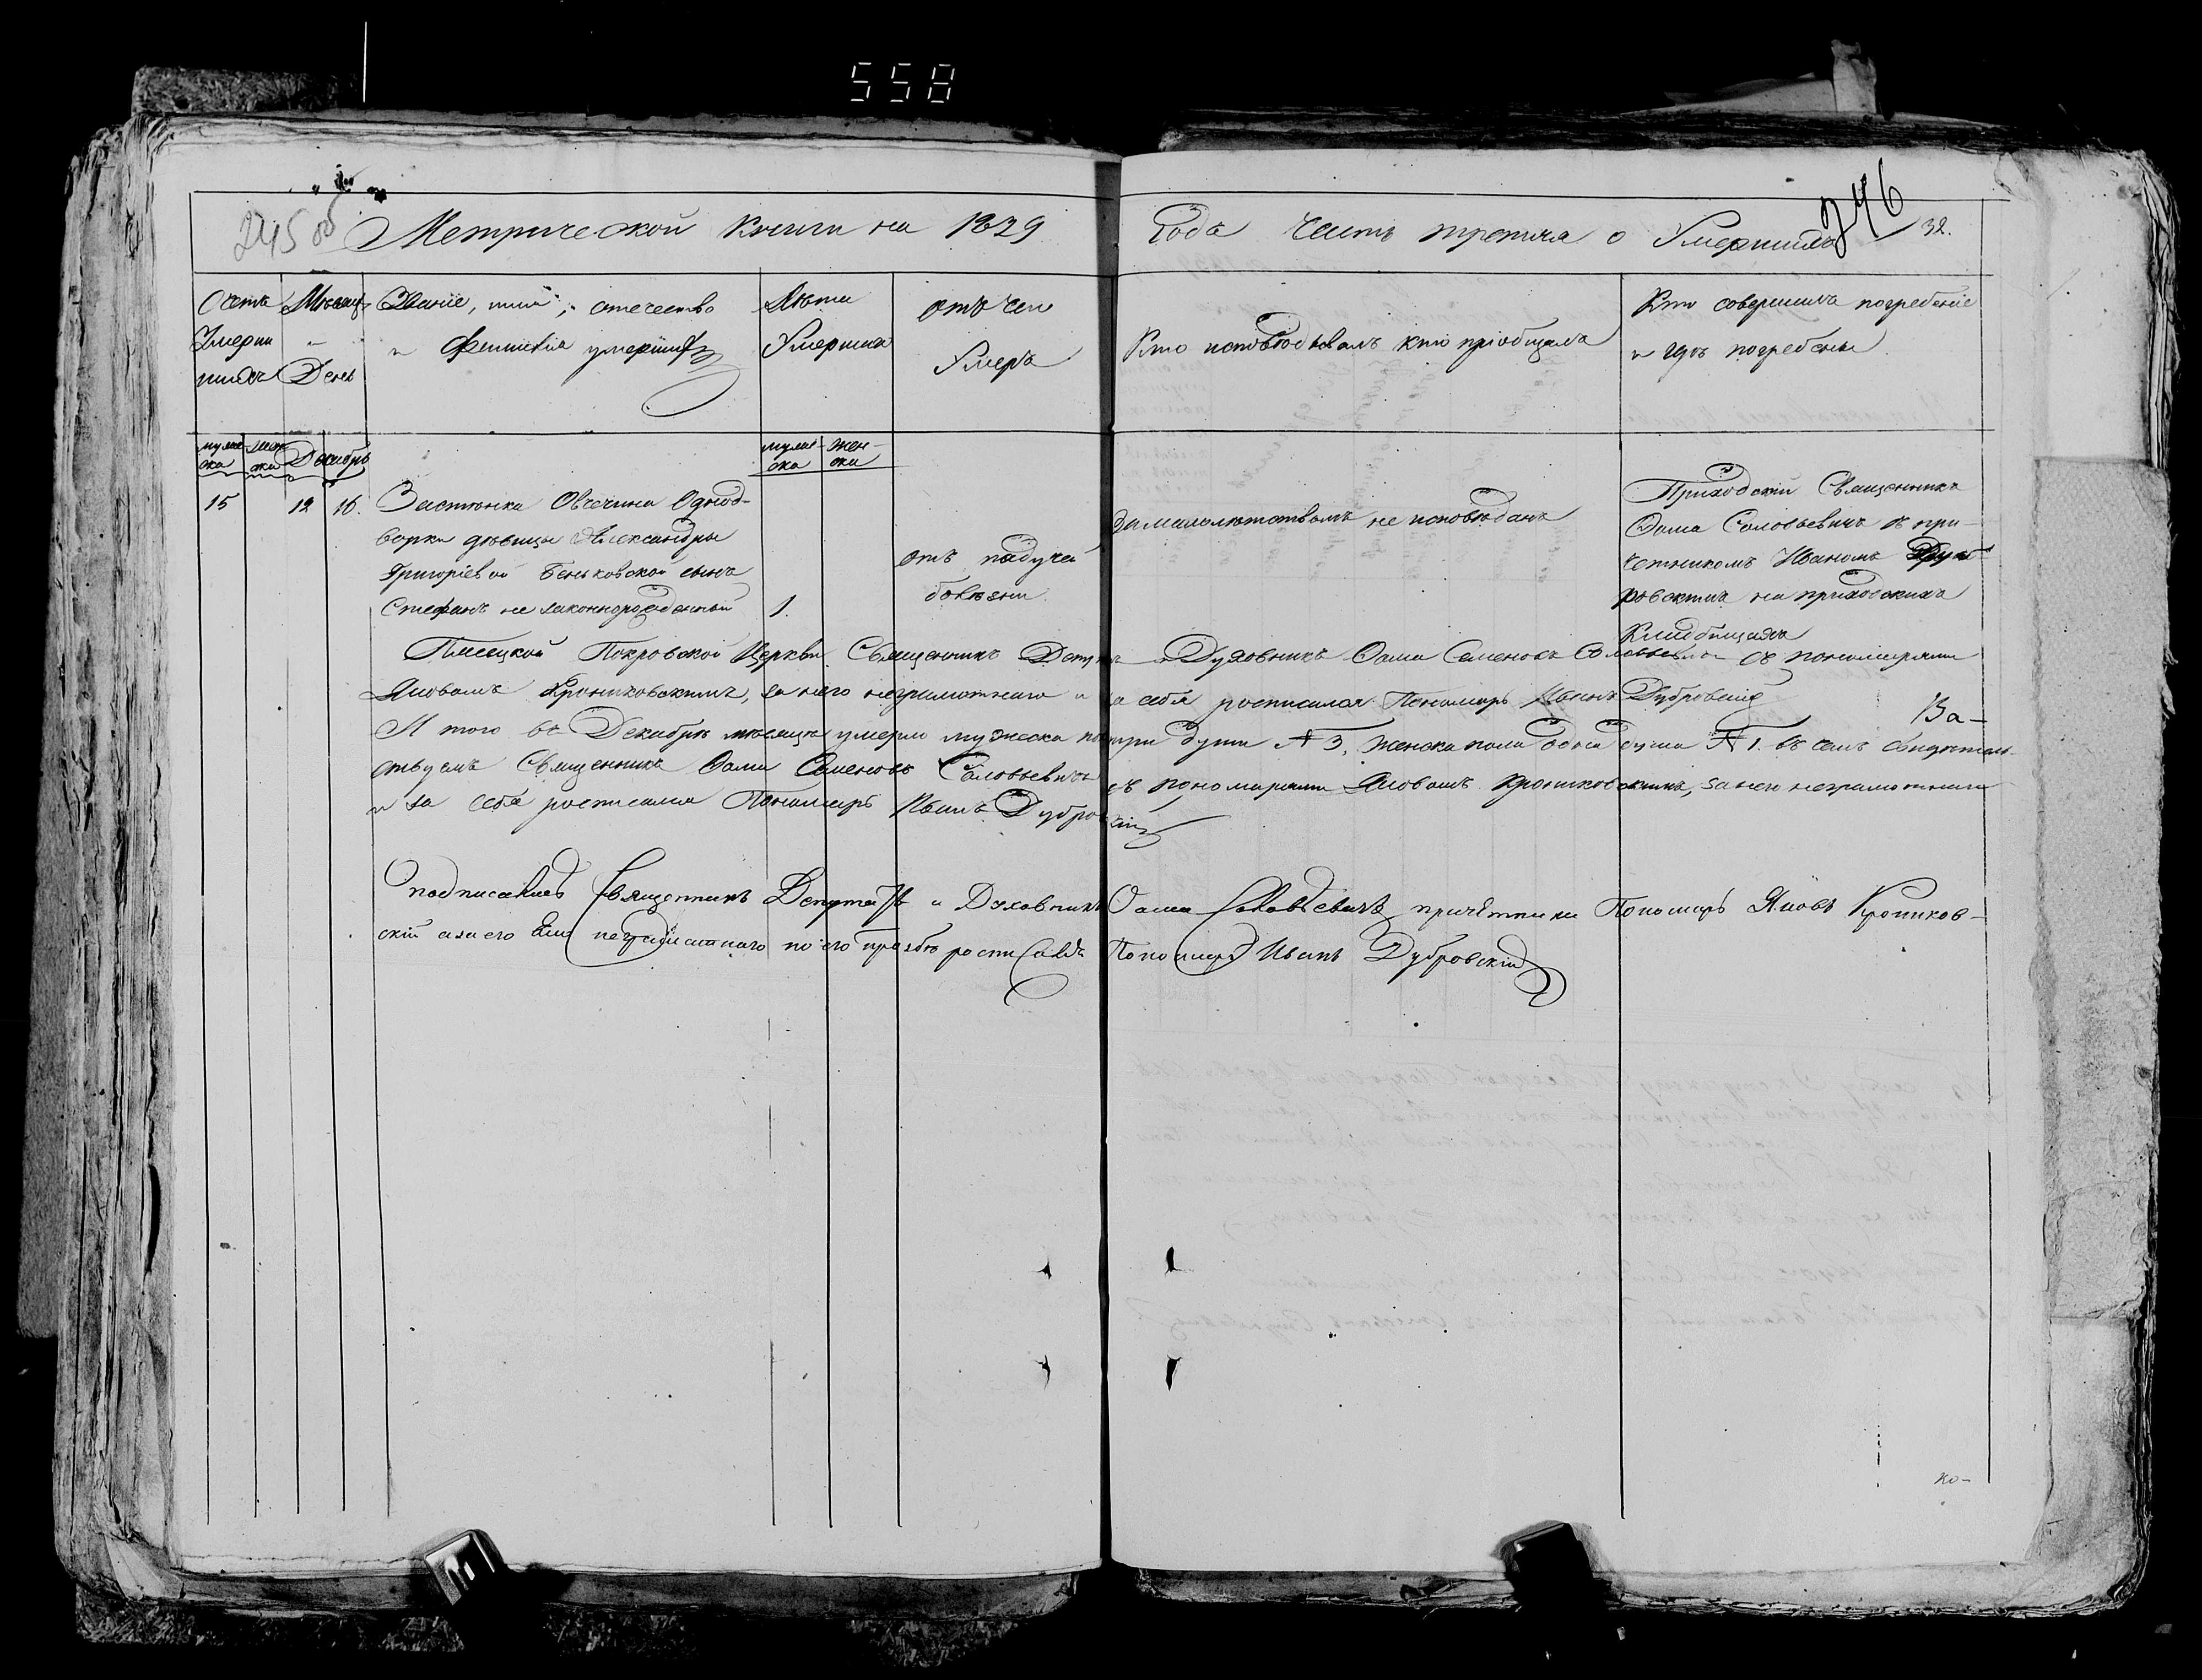 558
245 об
Метрической Книги на 1839 Года Часть третия о Умершихъ
246
32.
Счетъ Умерш шихъ
Мѣсяцъ и День
Званіе, имя, отечество и Фамилія умершихъ
Лѣта Умершихъ
отъ чего Умеръ
Кто исповѣдовалъ и кто пріобщалъ
Кто совершилъ погребеніе и гдѣ погребены
муже ска
жен ска
Декабрь
муже- ска
жен- ска
15
12
16.
Застѣнка Овсечина Однод-
ворки дѣвицы Александры
Григоріевой Беньковской сынъ
Стефанъ не законнорожденный
1.
отъ падучей
болѣзни
За малолѣтствомъ не исповѣданъ
Приходскій Священникъ
Фома Соловьевичъ съ при-
четникомъ Иваномъ Дуб-
ровскимъ на приходскихъ
Кладбищахъ
Покровской Церкви Священникъ Депутатъ и Духовникъ Фома Семеновъ Соловьевичъ съ пономарями
Яковомъ Крониковскимъ, за него неграмотнаго и за себя росписался Пономарь Иванъ Дубровскій
И того въ Декабрѣ мѣсяцѣ умерло мужеска пола три души № 3, женска пола одна душа № 1. въ семъ свидѣтель-
ствуемъ Священникъ Фома Семеновъ Соловьевичъ съ пономарями Яковомъ Крониковскимъ, за него неграмотнаго
и за себя росписался Пономарь Иванъ Дубровскій
Ва-
подписались Священникъ Депутатъ и Духовникъ Фома Соловьевичъ причетники Пономарь Яковъ Кроников-
скій а за его неграмотнаго по его прозбѣ росписался Пономарь Иванъ Дубровскій
ко-